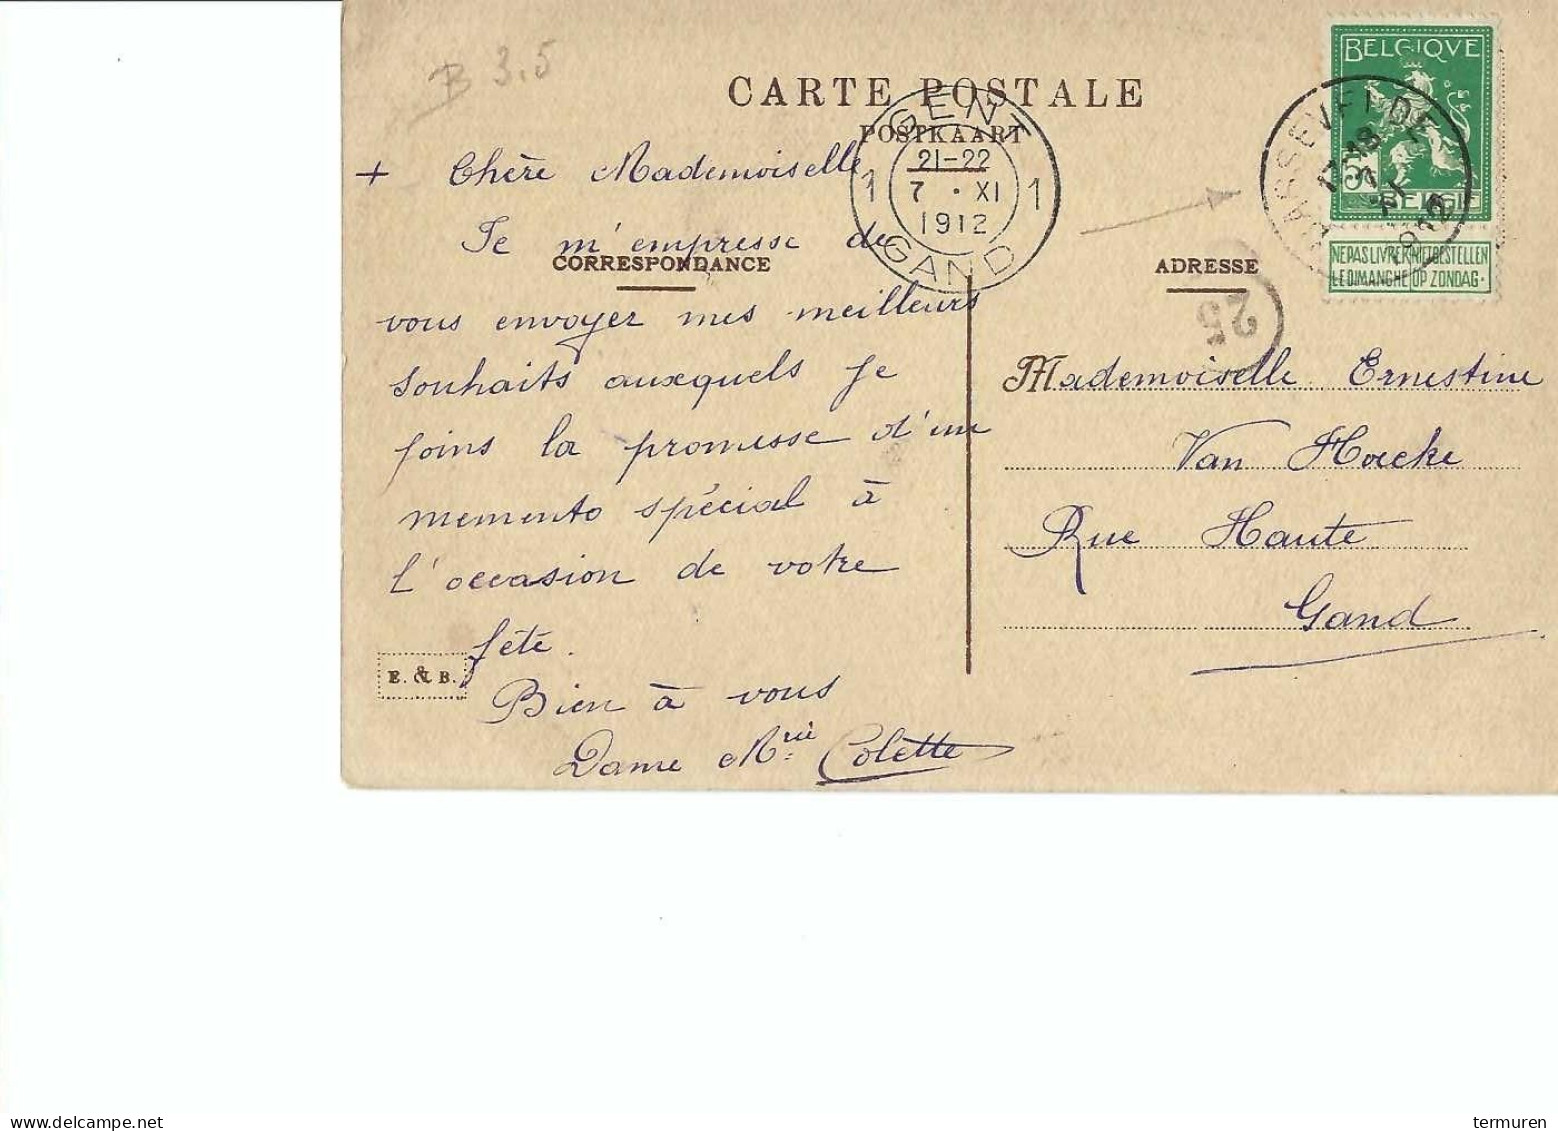 B 3.5
CARTE POSTALE
POSTKAART
GENT
21-22
7 · XI
1912
1 1
GAND
BELGIQVE
BELGIE
ASSEVELDE
1912
NE PAS LIVRER NIET BESTELLEN
LE DIMANCHE OP ZONDAG.
25
CORRESPONDANCE
ADRESSE
+ Chère Mademoiselle
Je m'empresse de
vous envoyer mes meilleurs
souhaits auxquels je
joins la promesse d'un
memento spécial à
l'occasion de votre
fête.
Bien à vous
Dame Mrie Colette
E. & B.
Mademoiselle Ernestine
Van Hoecke
Rue Haute
Gand
delcampe.net
termuren